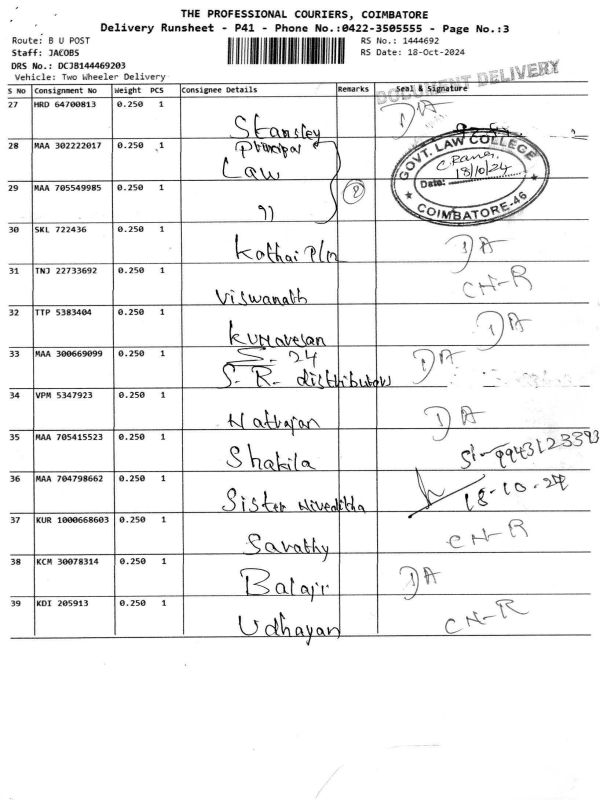 THE PROFESSIONAL COURIERS, COIMBATORE
Delivery Runsheet - P41 - Phone No.:0422-3505555 - Page No.:3
Route: B U POST RS No.: 1444692
Staff: JACOBS RS Date: 18-Oct-2024
DRS No.: DCJB144469203
Vehicle: Two Wheeler Delivery
DOCUMENT DELIVERY
S No Consignment No Weight PCS Consignee Details Remarks Seal & Signature
27 HRD 64700813 0.250 1 Stansley DA
28 MAA 302222017 0.250 1 Principal Law
29 MAA 705549985 0.250 1 " 2
GOVT. LAW COLLEGE
Date: 18/10/24
COIMBATORE-46
30 SKL 722436 0.250 1 Kathai Plm DA
31 TNJ 22733692 0.250 1 Viswanath CN-R
32 TTP 5383404 0.250 1 Kumaresan DA
33 MAA 300669099 0.250 1 S-24 S-R- distributors DA
34 VPM 5347923 0.250 1 Natrajan DA
35 MAA 705415523 0.250 1 Shakila 9943123393
36 MAA 704798662 0.250 1 Sister Niveditha 18-10-24
37 KUR 1000668603 0.250 1 Sarathy CN-R
38 KCM 30078314 0.250 1 Balaji DA
39 KDI 205913 0.250 1 Udhayan CN-R